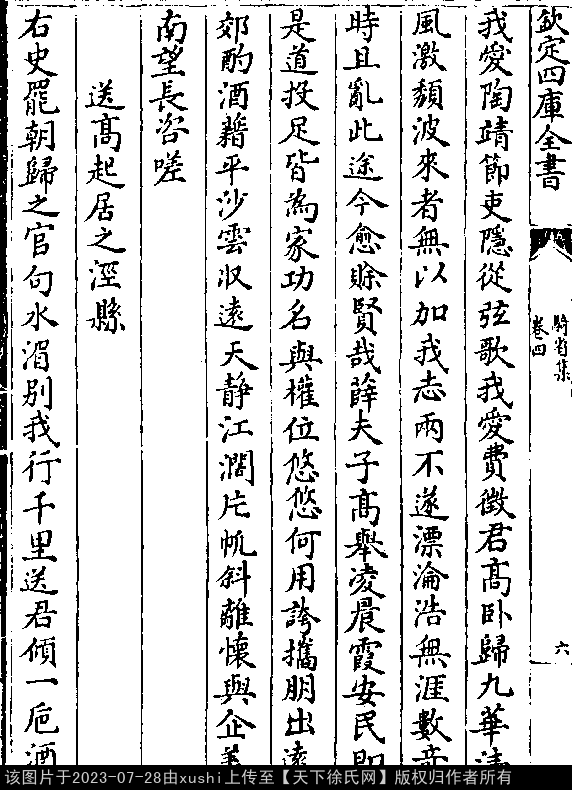 欽定四庫全書
騎省集
卷四
六
我愛陶靖節吏隱從弦歌我愛費徵君高卧歸九華清
風激頹波來者無以加我志兩不遂漂淪浩無涯數奇
時且亂此途今愈賒賢哉薛夫子高舉凌晨霞安民即
是道投足皆為家功名與權位悠悠何用誇攜朋出遠
郊酌酒藉平沙雲收遠天静江濶片帆斜離懷與企羨
南望長咨嗟
送高起居之涇縣
右史罷朝歸之官句水湄别我行千里送君傾一巵酒
该图片于2023-07-28由xushi上传至【天下徐氏网】版权归作者所有